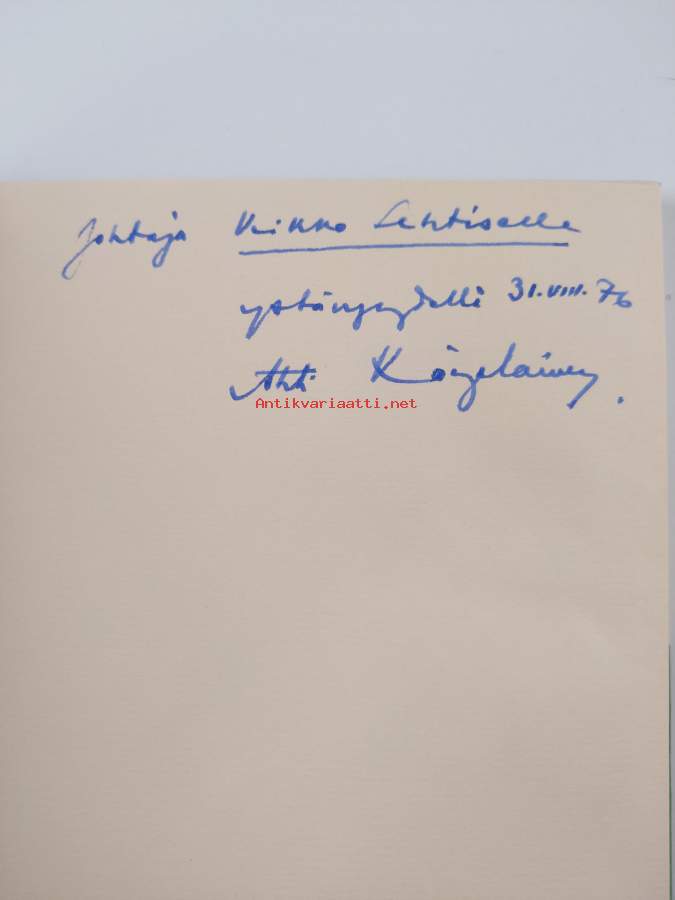 Johtaja Veikko Lehtiselle
ystävyydellä 31.VIII.76
Ahti Karjalainen.
Antikvariaatti.net